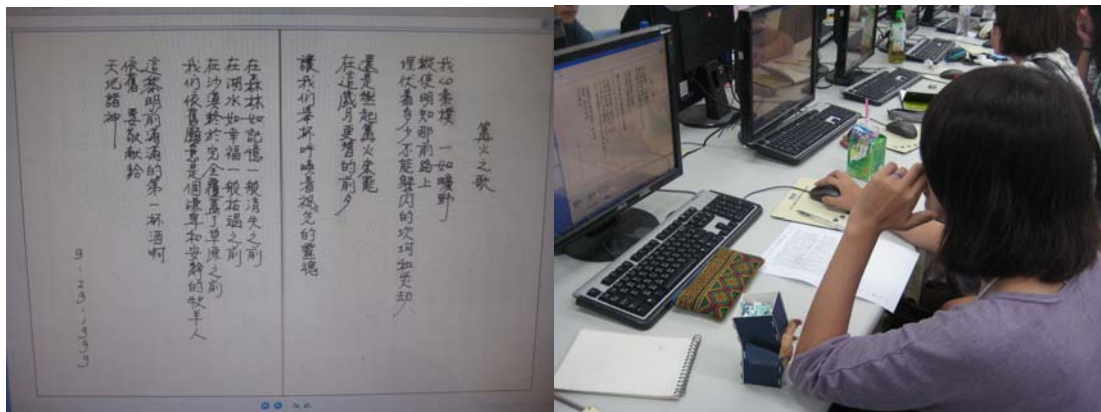 篝火之歌
我心素樸 一如曠野
縱使明知那前路上
埋伏著多少不能躲閃的坎坷和災劫
還是燃起篝火來罷
在這歲月更替的前夕
讓我們舉杯呼喚著祖先的靈魂
在森林如記憶一般消失之前
在湖水如幸福一般枯涸之前
在沙漠終於完全覆蓋了草原之前
我們依舊願意是個謙卑和安靜的牧羊人
這黎明前滿滿的第一杯酒啊
依舊 要敬獻給
天地諸神
9.29.1999